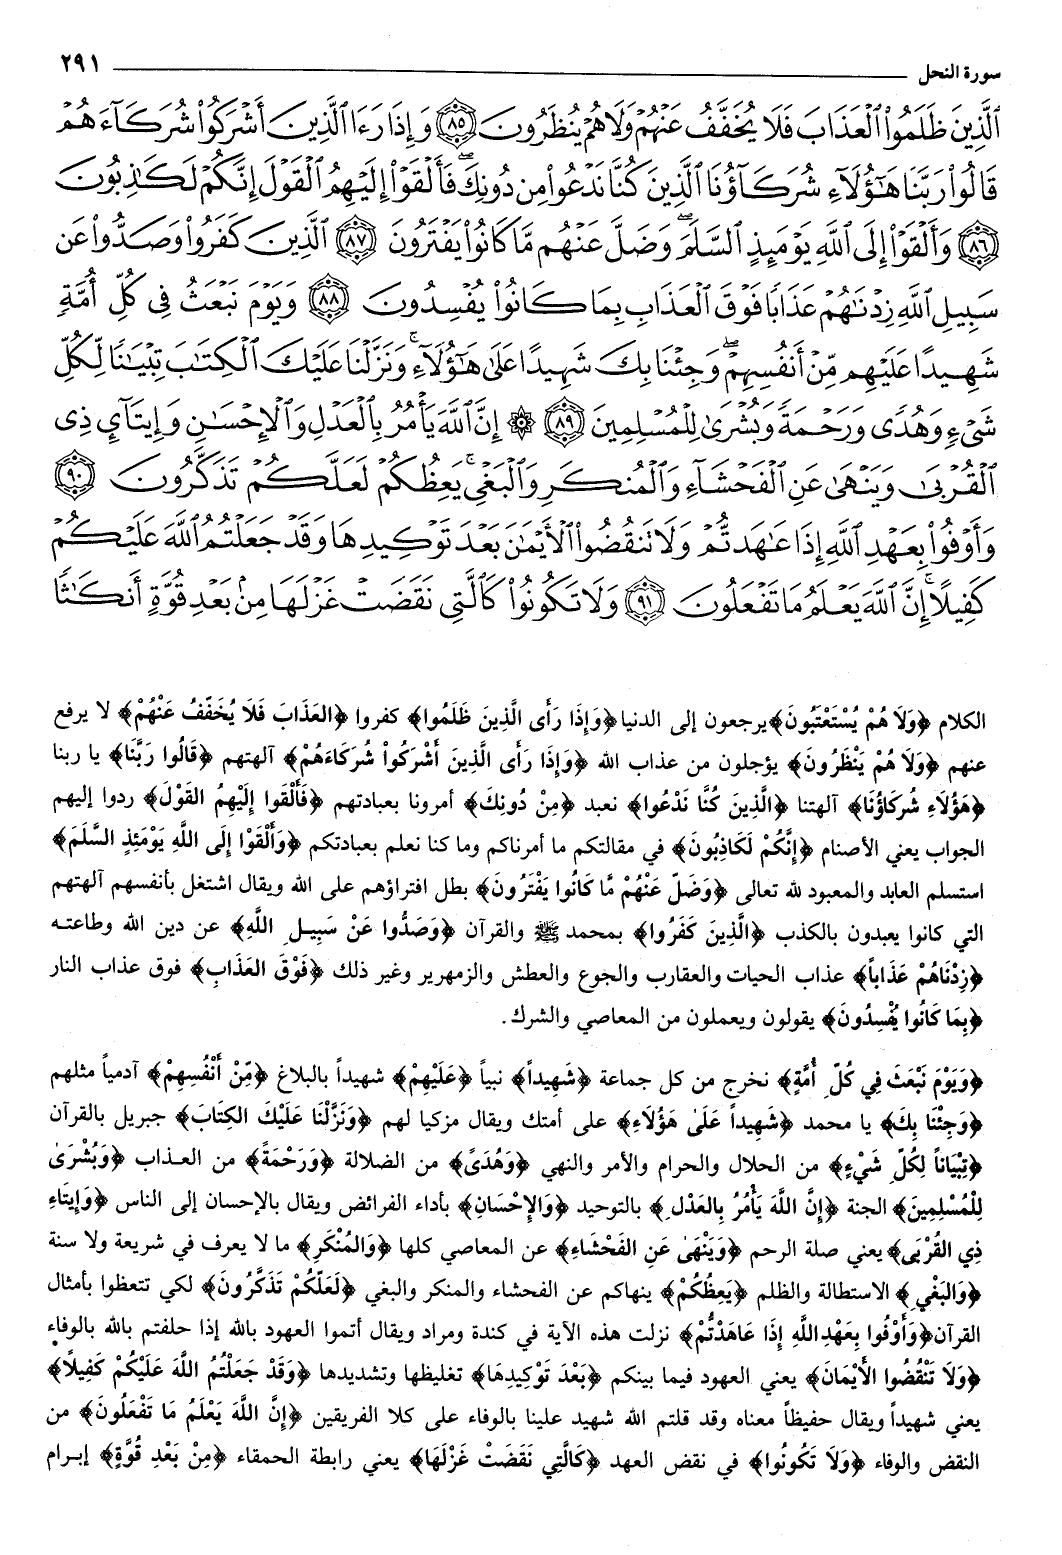 سورة النحل ٢٩١
ٱلَّذِينَ ظَلَمُواْ ٱلْعَذَابَ فَلَا يُخَفَّفُ عَنْهُمْ وَلَا هُمْ يُنظَرُونَ ٨٥ وَإِذَا رَءَا ٱلَّذِينَ أَشْرَكُواْ شُرَكَآءَهُمْ
قَالُواْ رَبَّنَا هَـٰٓؤُلَآءِ شُرَكَآؤُنَا ٱلَّذِينَ كُنَّا نَدْعُواْ مِن دُونِكَ ۖ فَأَلْقَوْاْ إِلَيْهِمُ ٱلْقَوْلَ إِنَّكُمْ لَكَـٰذِبُونَ
٨٦ وَأَلْقَوْاْ إِلَى ٱللَّهِ يَوْمَئِذٍ ٱلسَّلَمَ ۖ وَضَلَّ عَنْهُم مَّا كَانُواْ يَفْتَرُونَ ٨٧ ٱلَّذِينَ كَفَرُواْ وَصَدُّواْ عَن
سَبِيلِ ٱللَّهِ زِدْنَـٰهُمْ عَذَابًا فَوْقَ ٱلْعَذَابِ بِمَا كَانُواْ يُفْسِدُونَ ٨٨ وَيَوْمَ نَبْعَثُ فِى كُلِّ أُمَّةٍ
شَهِيدًا عَلَيْهِم مِّنْ أَنفُسِهِمْ ۖ وَجِئْنَا بِكَ شَهِيدًا عَلَىٰ هَـٰٓؤُلَآءِ ۚ وَنَزَّلْنَا عَلَيْكَ ٱلْكِتَـٰبَ تِبْيَـٰنًا لِّكُلِّ
شَىْءٍ وَهُدًى وَرَحْمَةً وَبُشْرَىٰ لِلْمُسْلِمِينَ ٨٩ ۞ إِنَّ ٱللَّهَ يَأْمُرُ بِٱلْعَدْلِ وَٱلْإِحْسَـٰنِ وَإِيتَآىِٕ ذِى
ٱلْقُرْبَىٰ وَيَنْهَىٰ عَنِ ٱلْفَحْشَآءِ وَٱلْمُنكَرِ وَٱلْبَغْىِ ۚ يَعِظُكُمْ لَعَلَّكُمْ تَذَكَّرُونَ ٩٠
وَأَوْفُواْ بِعَهْدِ ٱللَّهِ إِذَا عَـٰهَدتُّمْ وَلَا تَنقُضُواْ ٱلْأَيْمَـٰنَ بَعْدَ تَوْكِيدِهَا وَقَدْ جَعَلْتُمُ ٱللَّهَ عَلَيْكُمْ
كَفِيلًا ۚ إِنَّ ٱللَّهَ يَعْلَمُ مَا تَفْعَلُونَ ٩١ وَلَا تَكُونُواْ كَٱلَّتِى نَقَضَتْ غَزْلَهَا مِنۢ بَعْدِ قُوَّةٍ أَنكَـٰثًا
الكلام ﴿وَلَا هُمْ يُسْتَعْتَبُونَ﴾ يرجعون إلى الدنيا ﴿وَإِذَا رَأَى الَّذِينَ ظَلَمُوا﴾ كفروا ﴿العَذَابَ فَلَا يُخَفَّفُ عَنْهُمْ﴾ لا يرفع
عنهم ﴿وَلَا هُمْ يَنْظَرُونَ﴾ يؤجلون من عذاب الله ﴿وَإِذَا رَأَى الَّذِينَ أَشْرَكُواْ شُرَكَاءَهُمْ﴾ آلهتهم ﴿قَالُوا رَبَّنَا﴾ يا ربنا
﴿هَؤُلَاءِ شُرَكَاؤُنَا﴾ آلهتنا ﴿الَّذِينَ كُنَّا نَدْعُوا﴾ نعبد ﴿مِنْ دُونِكَ﴾ أمرونا بعبادتهم ﴿فَأَلْقَوا إِلَيْهِمُ القَوْلَ﴾ ردوا إليهم
الجواب يعني الأصنام ﴿إِنَّكُمْ لَكَاذِبُونَ﴾ في مقالتكم ما أمرناكم وما كنا نعلم بعبادتكم ﴿وَأَلْقَوْا إِلَى اللَّهِ يَوْمَئِذٍ السَّلَمَ﴾
استسلم العابد والمعبود لله تعالى ﴿وَضَلّ عَنْهُمْ مَّا كَانُوا يَفْتَرُونَ﴾ بطل افتراؤهم على الله ويقال اشتغل بأنفسهم آلهتهم
التي كانوا يعبدون بالكذب ﴿الَّذِينَ كَفَرُوا﴾ بمحمد ﷺ والقرآن ﴿وَصَدُّوا عَنْ سَبِيلِ اللَّهِ﴾ عن دين الله وطاعته
﴿زِدْنَاهُمْ عَذَاباً﴾ عذاب الحيات والعقارب والجوع والعطش والزمهرير وغير ذلك ﴿فَوْقَ العَذَابِ﴾ فوق عذاب النار
﴿بِمَا كَانُوا يُفْسِدُونَ﴾ يقولون ويعملون من المعاصي والشرك.
﴿وَيَوْمَ نَبْعَثُ فِي كُلِّ أُمَّةٍ﴾ نخرج من كل جماعة ﴿شَهِيداً﴾ نبياً ﴿عَلَيْهِمْ﴾ شهيداً بالبلاغ ﴿مِّنْ أَنْفُسِهِمْ﴾ آدمياً مثلهم
﴿وَجِئْنَا بِكَ﴾ يا محمد ﴿شَهِيداً عَلَىٰ هَؤُلَاءِ﴾ على أمتك ويقال مزكيا لهم ﴿وَنَزَّلْنَا عَلَيْكَ الكِتَابَ﴾ جبريل بالقرآن
﴿تِبْيَاناً لِكُلِّ شَيْءٍ﴾ من الحلال والحرام والأمر والنهي ﴿وَهُدًى﴾ من الضلالة ﴿وَرَحْمَةً﴾ من العذاب ﴿وَبُشْرَىٰ
لِلْمُسْلِمِينَ﴾ الجنة ﴿إِنَّ اللَّهَ يَأْمُرُ بِالعَدْلِ﴾ بالتوحيد ﴿وَالإِحْسَانِ﴾ بأداء الفرائض ويقال بالإحسان إلى الناس ﴿وَإِيتَاءِ
ذِي القُرْبَى﴾ يعني صلة الرحم ﴿وَيَنْهَىٰ عَنِ الفَحْشَاءِ﴾ عن المعاصي كلها ﴿وَالمُنْكَرِ﴾ ما لا يعرف في شريعة ولا سنة
﴿وَالبَغْيِ﴾ الاستطالة والظلم ﴿يَعِظُكُمْ﴾ ينهاكم عن الفحشاء والمنكر والبغي ﴿لَعَلَّكُمْ تَذَكَّرُونَ﴾ لكي تتعظوا بأمثال
القرآن ﴿وَأَوْفُوا بِعَهْدِ اللَّهِ إِذَا عَاهَدْتُّمْ﴾ نزلت هذه الآية في كندة ومراد ويقال أتموا العهود بالله إذا حلفتم بالله بالوفاء
﴿وَلَا تَنْقُضُوا الأَيْمَانَ﴾ يعني العهود فيما بينكم ﴿بَعْدَ تَوْكِيدِهَا﴾ تغليظها وتشديدها ﴿وَقَدْ جَعَلْتُمُ اللَّهَ عَلَيْكُمْ كَفِيلاً﴾
يعني شهيداً ويقال حفيظاً معناه وقد قلتم الله شهيد علينا بالوفاء على كلا الفريقين ﴿إِنَّ اللَّهَ يَعْلَمُ مَا تَفْعَلُونَ﴾ من
النقض والوفاء ﴿وَلَا تَكُونُوا﴾ في نقض العهد ﴿كَالَّتِي نَقَضَتْ غَزْلَهَا﴾ يعني رابطة الحمقاء ﴿مِنْ بَعْدِ قُوَّةٍ﴾ إبرام